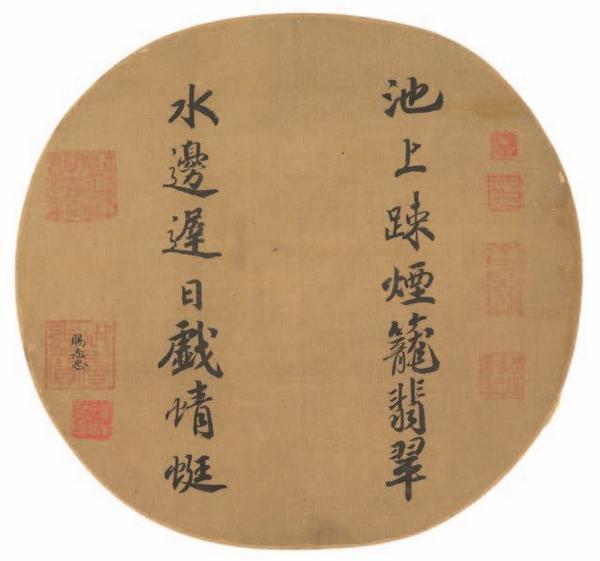 池上踈煙籠翡翠
水邊遅日戯蜻蜓
賜志忠